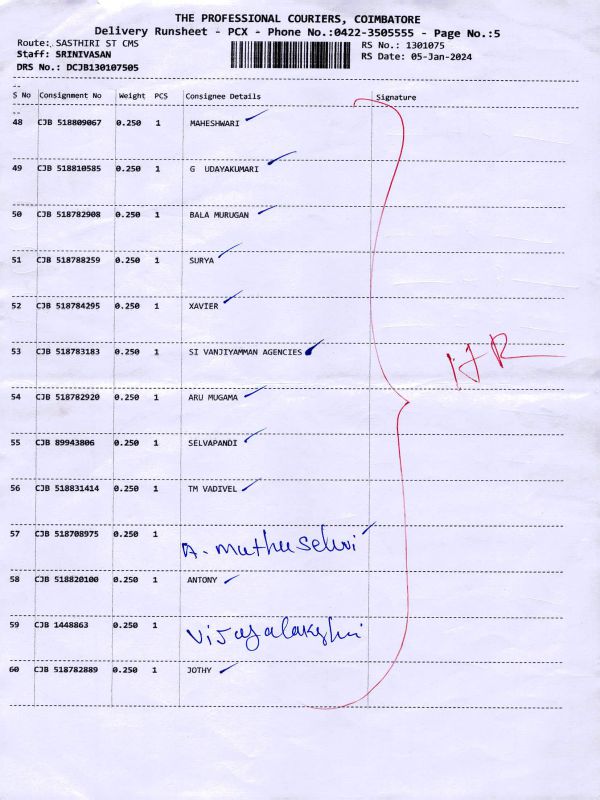 THE PROFESSIONAL COURIERS, COIMBATORE
Delivery Runsheet - PCX - Phone No.:0422-3505555 - Page No.:5
Route: SASTHIRI ST CMS
Staff: SRINIVASAN
DRS No.: DCJB130107505
RS No.: 1301075
RS Date: 05-Jan-2024
S No Consignment No Weight PCS Consignee Details Signature
48 CJB 518809067 0.250 1 MAHESHWARI
49 CJB 518810585 0.250 1 G UDAYAKUMARI
50 CJB 518782908 0.250 1 BALA MURUGAN
51 CJB 518788259 0.250 1 SURYA
52 CJB 518784295 0.250 1 XAVIER
53 CJB 518783183 0.250 1 SI VANJIYAMMAN AGENCIES
54 CJB 518782920 0.250 1 ARU MUGAMA
55 CJB 89943806 0.250 1 SELVAPANDI
56 CJB 518831414 0.250 1 TM VADIVEL
57 CJB 518708975 0.250 1 A. Muthuselvi
58 CJB 518820100 0.250 1 ANTONY
59 CJB 1448863 0.250 1 Vijayalakshi
60 CJB 518782889 0.250 1 JOTHY